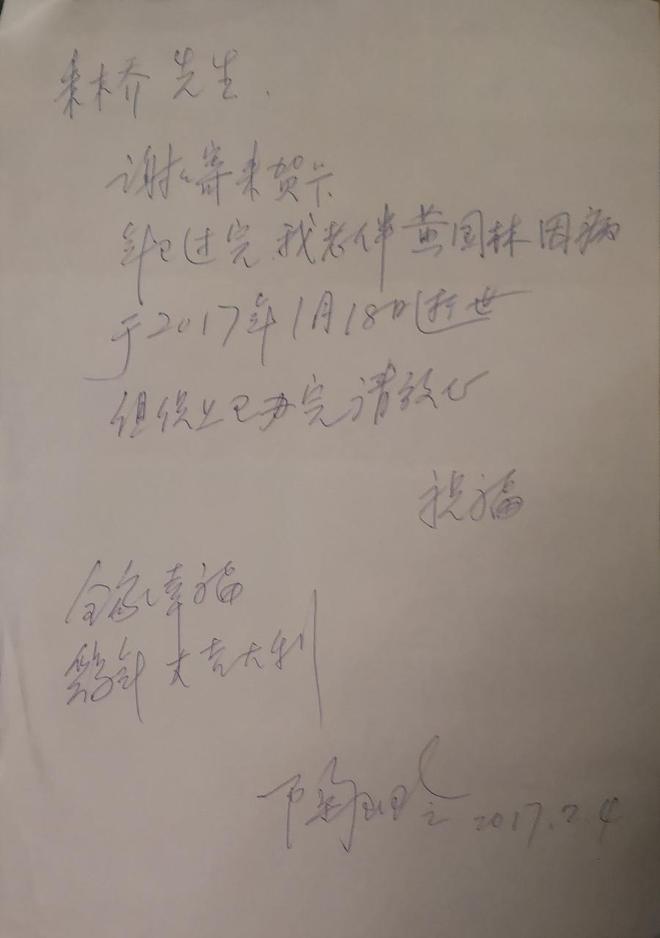 先生.
谢谢寄来贺卡
年已过完 我老伴黄国林因病
于2017年1月18日逝世
组织上已办完请放心
祝福
全家幸福
鸡年大吉大利
2017.2.4